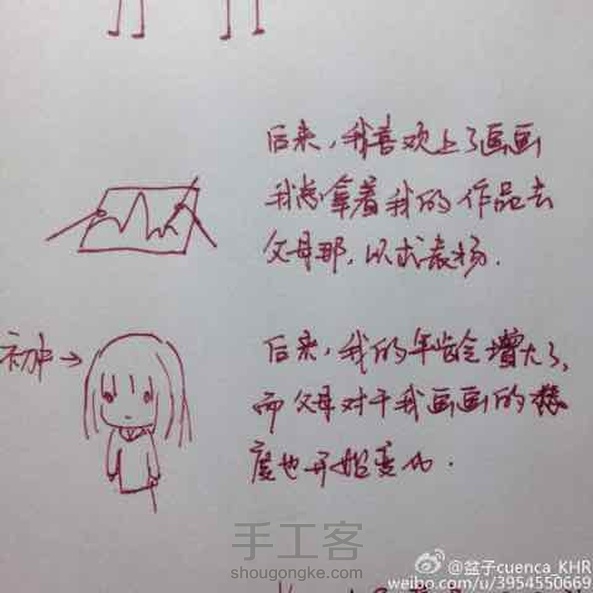 后来，我喜欢上了画画
我总拿着我的作品去
父母那，以求表扬.
初中→
后来，我的年龄增大了，
而父母对于我画画的态
度也开始变化.
手工客
shougongke.com
@盆子cuenca_KHR
weibo.com/u/3954550669